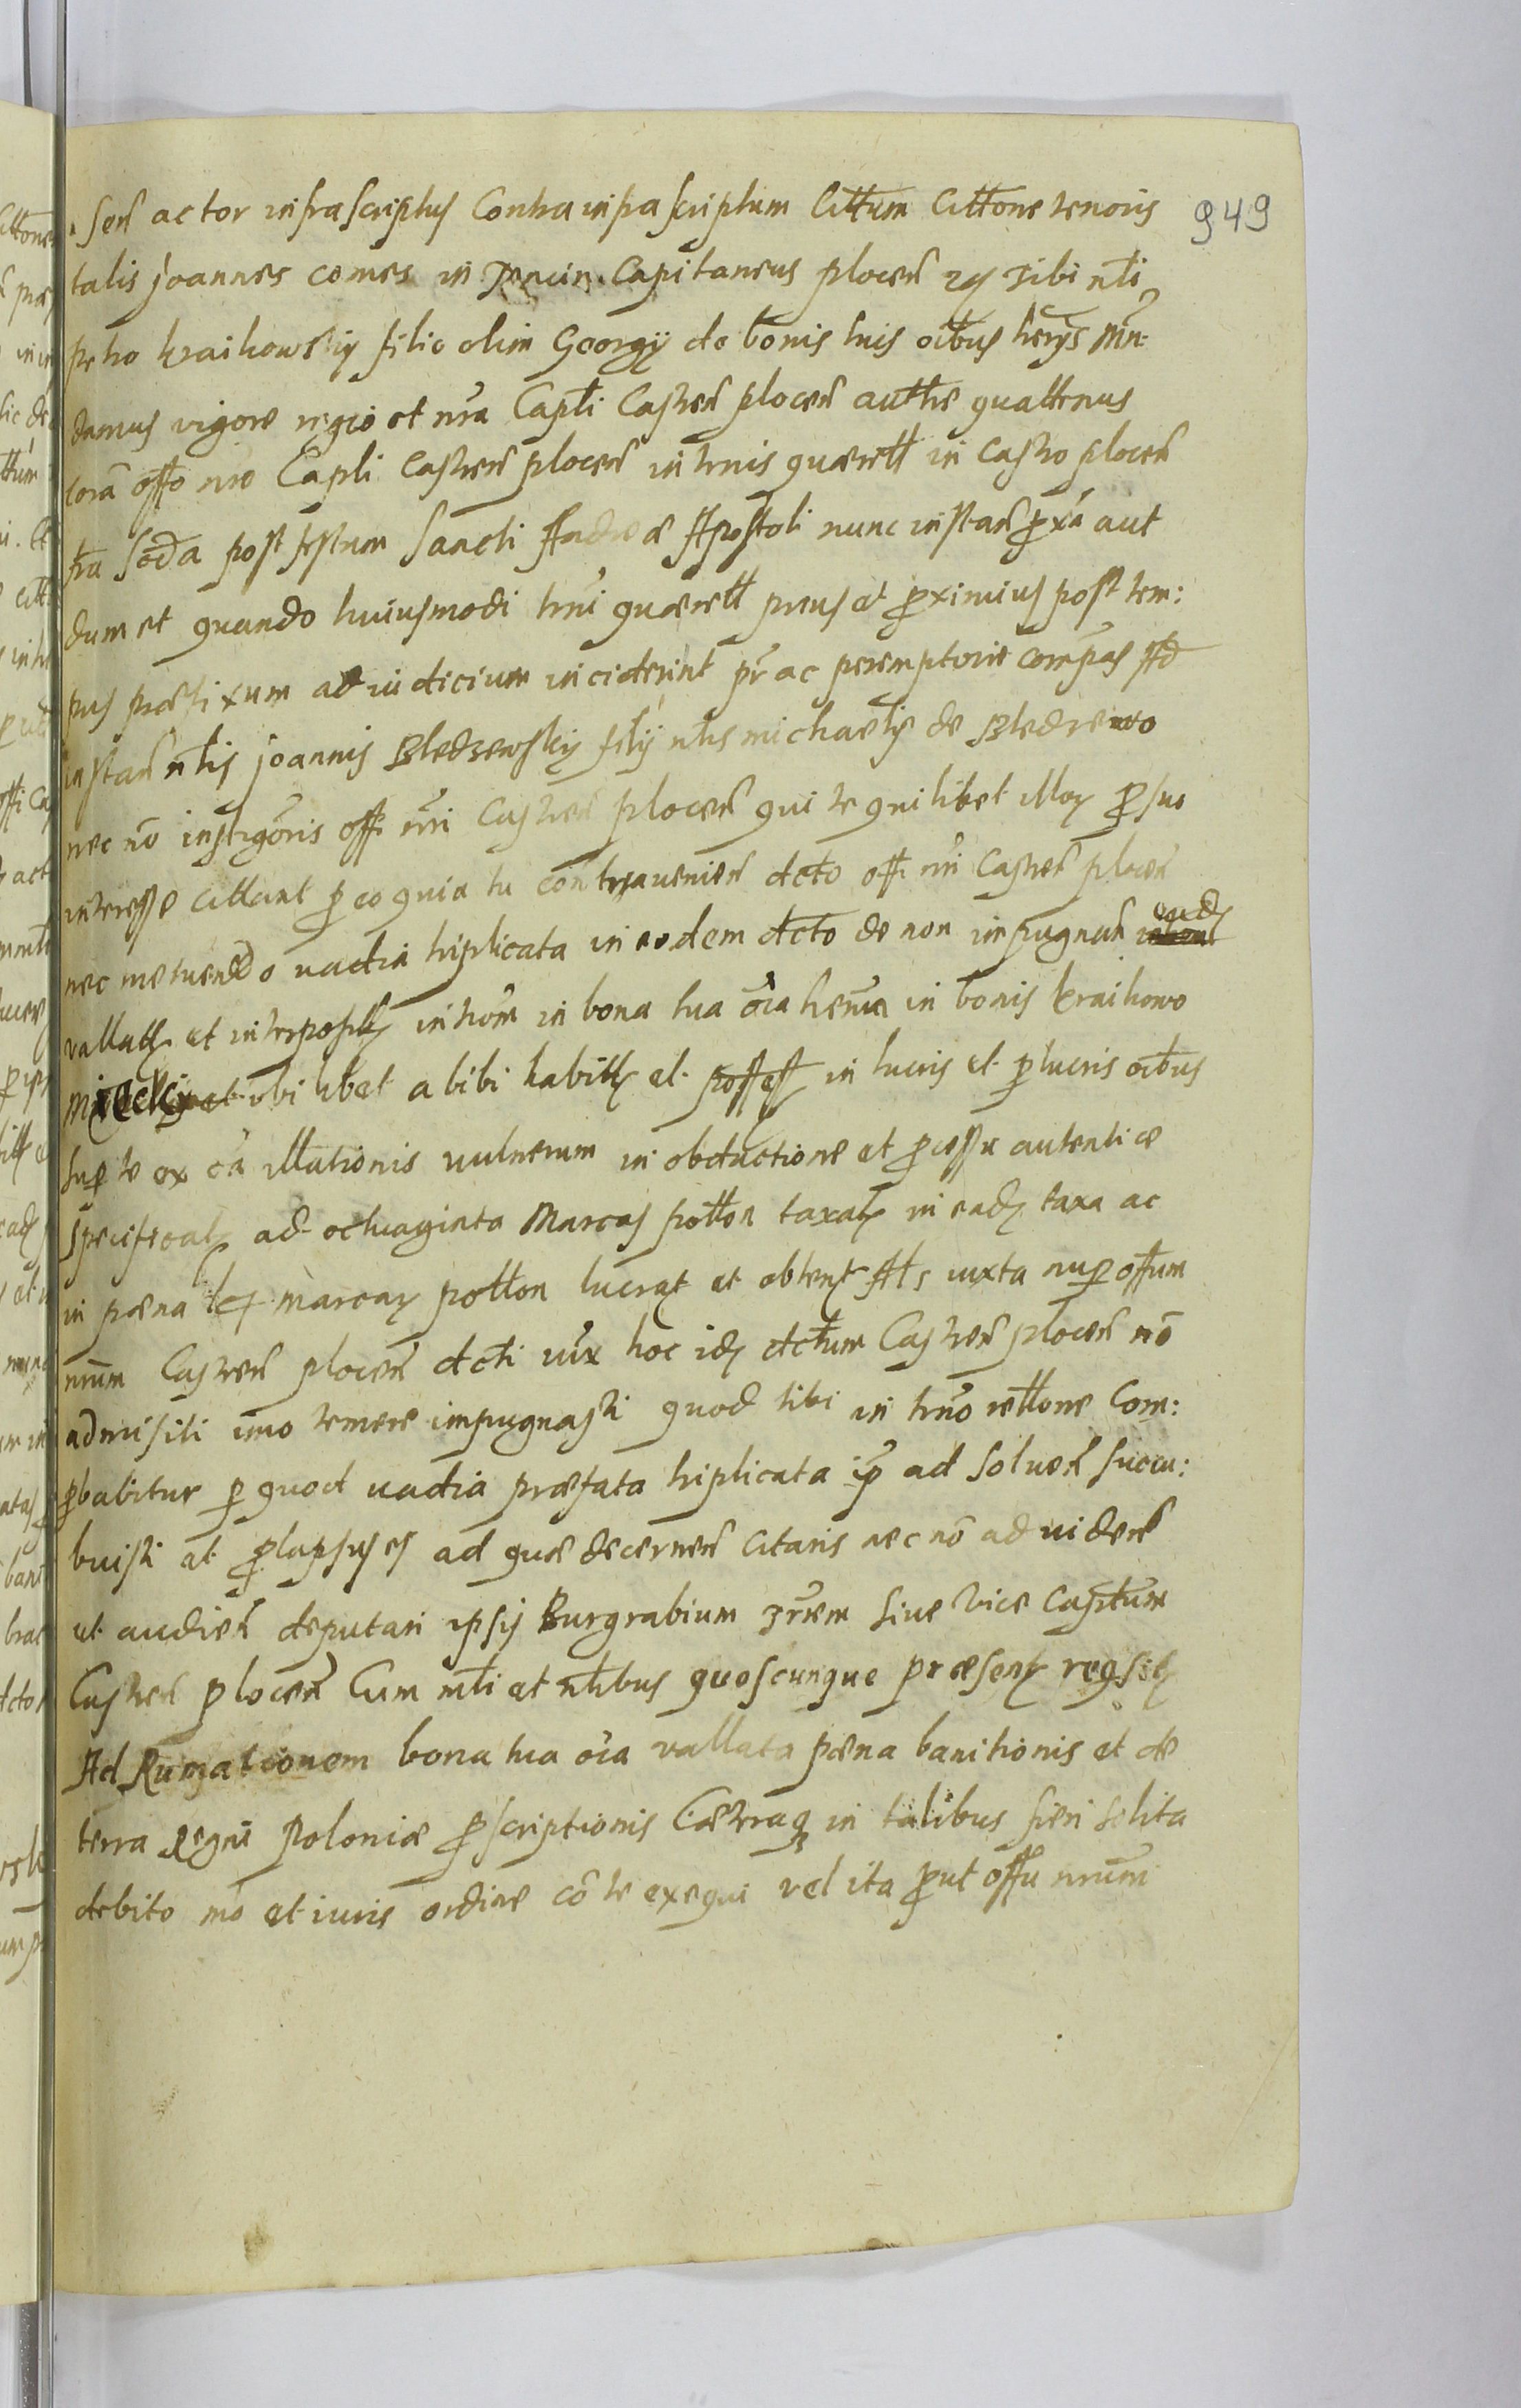 949
Seń actor infrascriptus Contra infrascriptum Cittum Cittone tenoris
talis Joannes comes in Tencin Capitaneus ploceń Tibi nłi
petro kraikowsky filio olim Georgÿ de bonis tuis oībus Mn:
damus vigore regio et nrā Capłi Castreń ploceń autħe quattenus
corā offo nrō Capłi Castreń ploceń in trnis querełł in Castro ploceń
fra Scďa post festum Sancti Andreæ Apostoli nunc instań pxā aut
dum et quando huiusmodi trnī querełł prius et proximius post tem:
pus præfixum ad iudicium inciderint pr̄ ac peremptorie compas Ad
instań nłis Joannis Bledzewsky filÿ nłis michaelis de Bledzewo
nec nō instigōris offi nrī Castreń ploceń qui te quilibet illoꝝ pro suo
interesse cittant pro eo quia tu contraveniеń dcto offi nrī Castreń ploceń
nec metuendo uadia triplicata in eodem dcto de non impugnań eadꝫ
vallatꝫ et interpositꝫ introm̄ in bona tua oīa in bonis kraikowo
et ubi libet alibi habitꝫ et possess in lucris et perlucris oībus
super te ex cā illationis vulnerum in obductione et processu autenticæ
specificatꝫ ad octuaginta Marcas połłon taxatꝫ in eadꝫ taxa ac
in pæna marcaꝝ połłon lucratꝫ et obtentꝫ Als iuxta nuper offum
nrūm Castreń ploceń dcti vix hoc idꝫ dctum Castreń ploceń nō
admisisti imo temere impugnasti quod tibi in trnō rełłone Com:
probabitur per quod uadia præfata triplicata ip̄ ad solueń succu:
buisti et prolapsus es ad quæ decerneń citaris nec nō ad videń
et audień deputari ipsis Burgrabium siue Vice Capłtum
Castreń ploceń Cum młi et nłibus quoscunque præsentꝫ
Ad Rumationem bona tua oīa vallata pæna banitionis et de
terra regni Poloniæ proscriptionis Cæteraqꝫ in talibus fieri solita
debito mō et iuris ordine cō te exequi vel ita prout offū nrūm